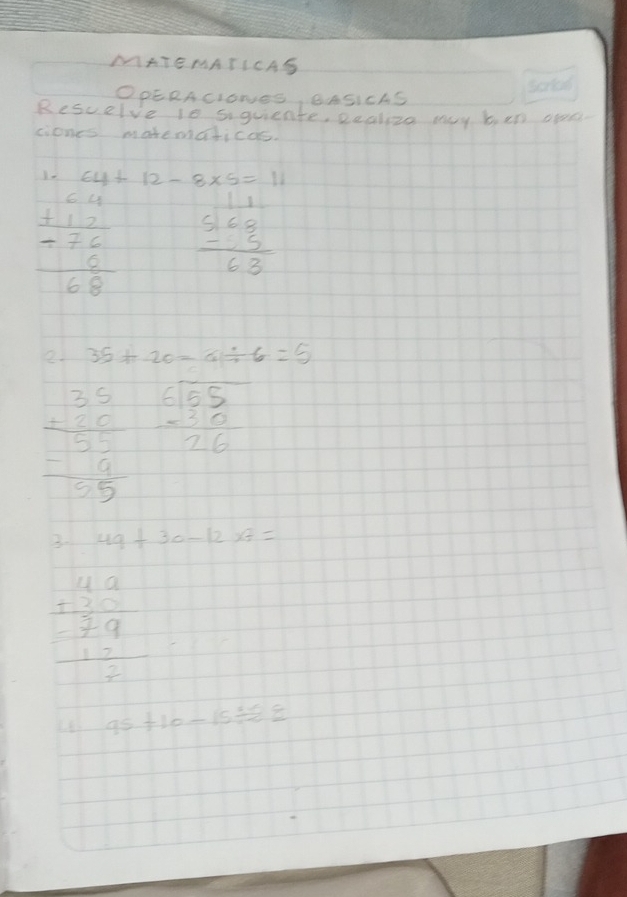 MATEMATICAS
OPERACIONES, BASICAS
Scribe
Resuelve lo siguiente. Realiza muy bien opera-
ciones matematicas.
1- 64 + 12 - 8 x 5 = 11
64
+ 12
- 76
8
68
11
5 68
- 5
63
2. 35 + 20 - ÷ 6 = 5
35
+ 20
55
- 9
55
6 55
- 30
26
3. 49 + 30 - 12 x =
49
+ 30
- 79
12
2
4. 95 + 10 - 15 ÷